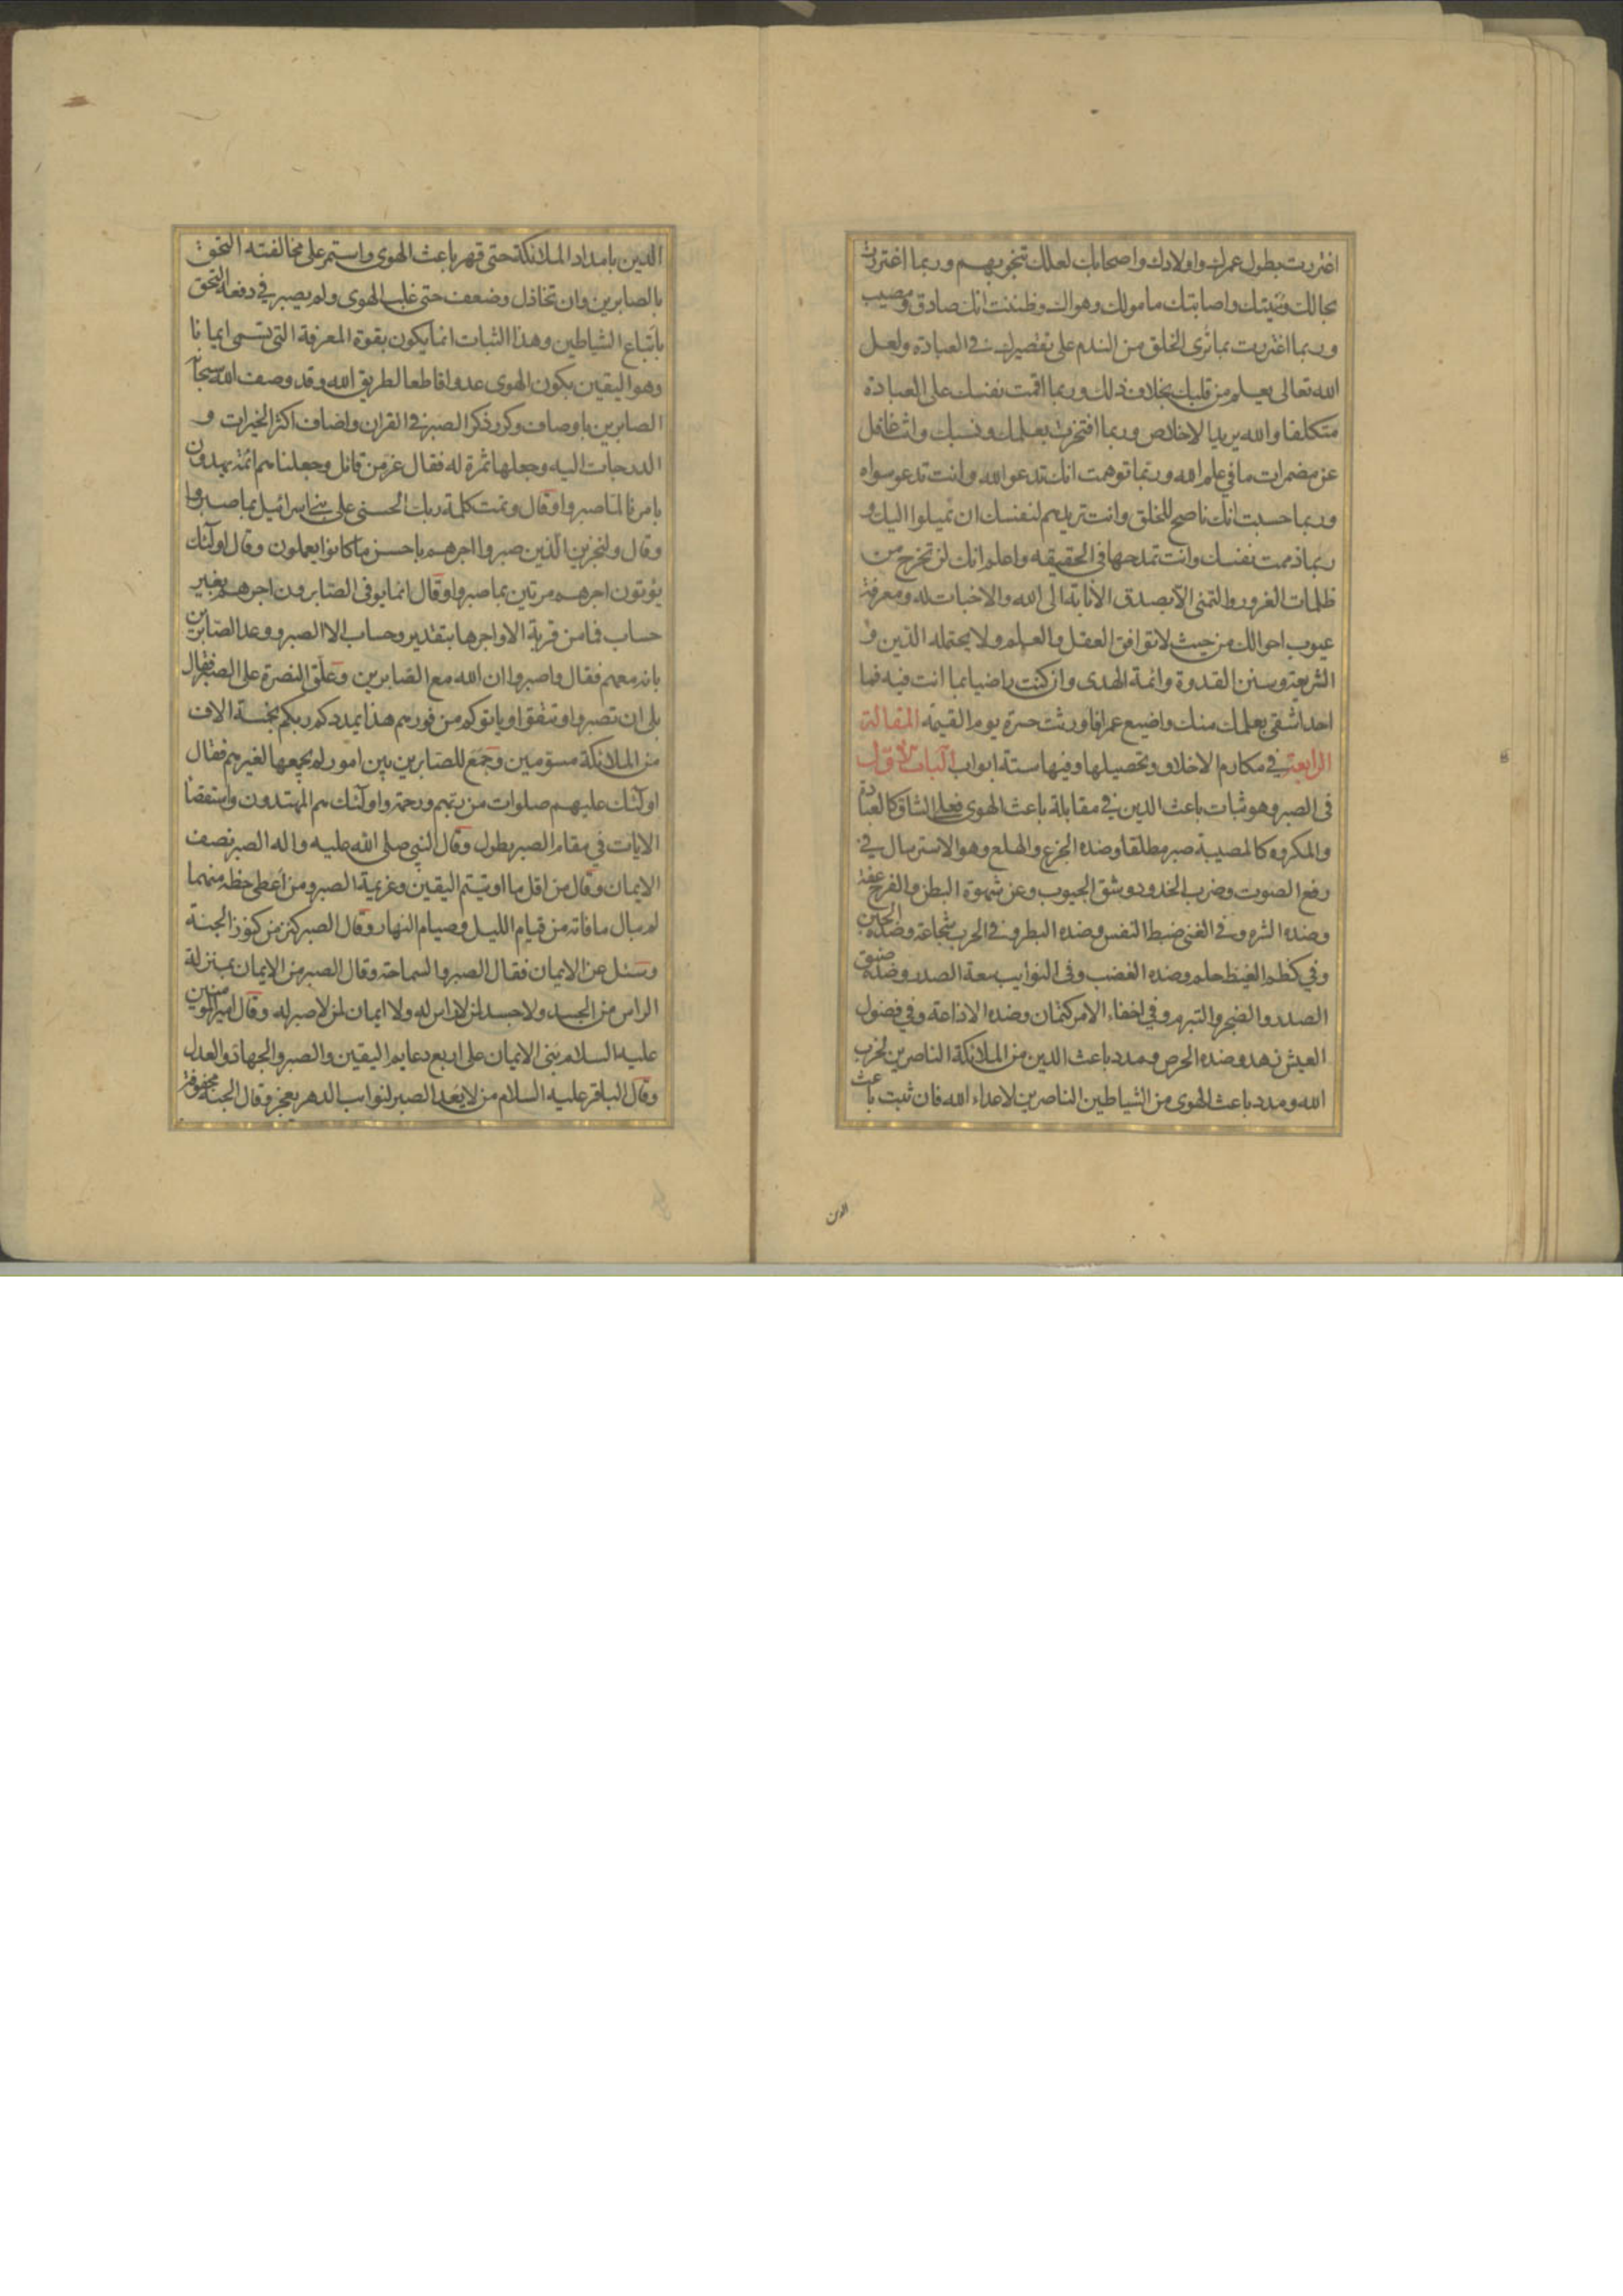 اغتررت بطول عمرك واولادك واصحابك لعلك تنجو بهم وربما اغتررت
بحالك ومنيتك واصابتك مامولك وهواك وظننت انك صادق ومصيب
وربما اغتررت بما ترى الخلق من الندم على تقصيرك في العبادة ولعل
الله تعالى يعلم من قلبك بخلاف ذلك وربما اقمت نفسك على العبادة
متكلفا والله يريد الاخلاص وربما افتخرت بعلمك ونسبك وانت غافل
عن مضمرات ما في علم الله وربما توهمت انك تدعو الله وانت تدعو سواه
وربما حسبت انك ناصح للخلق وانت تريدهم لنفسك ان تميلوا اليك و
ربما ذممت نفسك وانت تمدحها في الحقيقه واعلم انك لن تخرج من
ظلمات الغرور والتمنى الا بصدق الانابة الى الله والاخبات له ومعرفة
عيوب احوالك من حيث لا توافق العقل والعلم ولا يحتمله الدين و
الشريعة وسنن القدوة وائمة الهدى وان كنت راضيا بما انت فيه فما
احد اشقى بعلمك منك واضيع عمرا فاورثت حسرة يوم القيمة المقالة
الرابعة في مكارم الاخلاق وتحصيلها وفيها ستة ابواب الباب الاول
في الصبر وهو ثبات باعث الدين في مقابلة باعث الهوى فعلى الشاق كالعبادة
والمكروه كالمصيبة صبر مطلقا وضده الجزع والهلع وهو الاسترسال في
رفع الصوت وضرب الخدود وشق الجيوب وعن شهوة البطن والفرج عفة
وضده الشره وفي الغنى ضبط النفس وضده البطر وفي الحرب شجاعة وضده الجبن
وفي كظم الغيظ حلم وضده الغضب وفي النوايب سعة الصدر وضده ضيق
الصدر والضجر والتبرم وفي اخفاء الامر كتمان وضده الاذاعة وفي فضول
العيش زهد وضده الحرص ومدد باعث الدين من الملائكة الناصرين لحزب
الله ومدد باعث الهوى من الشياطين الناصرين لاعداء الله فان ثبت باعث
الدين
الدين بامداد الملائكة حتى قهر باعث الهوى واستمر على مخالفته التحق
بالصابرين وان تخاذل وضعف حتى غلب الهوى ولم يصبر في دفعه التحق
باتباع الشياطين وهذا الثبات انما يكون بقوة المعرفة التي تسمى ايمانا
وهو اليقين بكون الهوى عدوا قاطعا لطريق الله وقد وصف الله سبحانه
الصابرين باوصاف وكرر ذكر الصبر في القران واضاف اكثر الخيرات و
الدرجات اليه وجعلها ثمرة له فقال عز من قائل وجعلنا هم ائمة يهدون
بامرنا لما صبروا وقال وتمت كلمة ربك الحسنى على بني اسرائيل بما صبروا
وقال ولنجزين الذين صبروا اجرهم باحسن ما كانوا يعملون وقال اولئك
يؤتون اجرهم مرتين بما صبروا وقال انما يوفى الصابرون اجرهم بغير
حساب فما من قربة الا واجرها بتقدير وحساب الا الصبر ووعد الصابرين
بانه معهم فقال واصبروا ان الله مع الصابرين وعلق النصرة على الصبر فقال
بلى ان تصبروا وتتقوا وياتوكم من فورهم هذا يمددكم ربكم بخمسة الاف
من الملائكة مسومين وجمع للصابرين بين امور لم يجمعها لغيرهم فقال
اولئك عليهم صلوات من ربهم ورحمة واولئك هم المهتدون واستقصاء
الايات في مقام الصبر يطول وقال النبي صلى الله عليه واله الصبر نصف
الايمان وقال من اقل ما اوتيتم اليقين وعزيمة الصبر ومن اعطى حظه منهما
لم يبال ما فاته من قيام الليل وصيام النهار وقال الصبر كنز من كنوز الجنة
وسئل عن الايمان فقال الصبر والسماحة وقال الصبر من الايمان بمنزلة
الراس من الجسد ولا جسد لمن لا راس له ولا ايمان لمن لا صبر له وقال اميرالمومنين
عليه السلام بنى الايمان على اربع دعايم اليقين والصبر والجهاد والعدل
وقال الباقر عليه السلام من لا يعد الصبر لنوايب الدهر يعجز وقال الجنة محفوفة